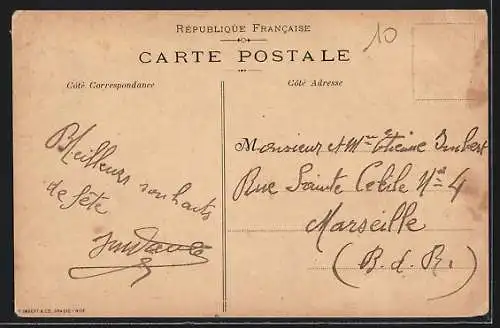 RÉPUBLIQUE FRANÇAISE
10
CARTE POSTALE
Côté Correspondance
Côté Adresse
Meilleurs souhaits
de fête
Monsieur et Mme Etienne Imbert
Rue Sainte Cécile No 4
Marseille
(B. d. R.)
IMBERT & CO, GRASSE-NICE